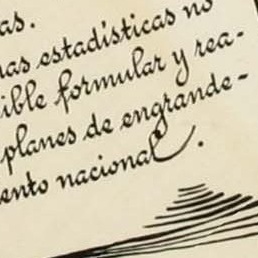 as.
nas estadísticas no
ible formular y rea-
planes de engrande-
ento nacional.